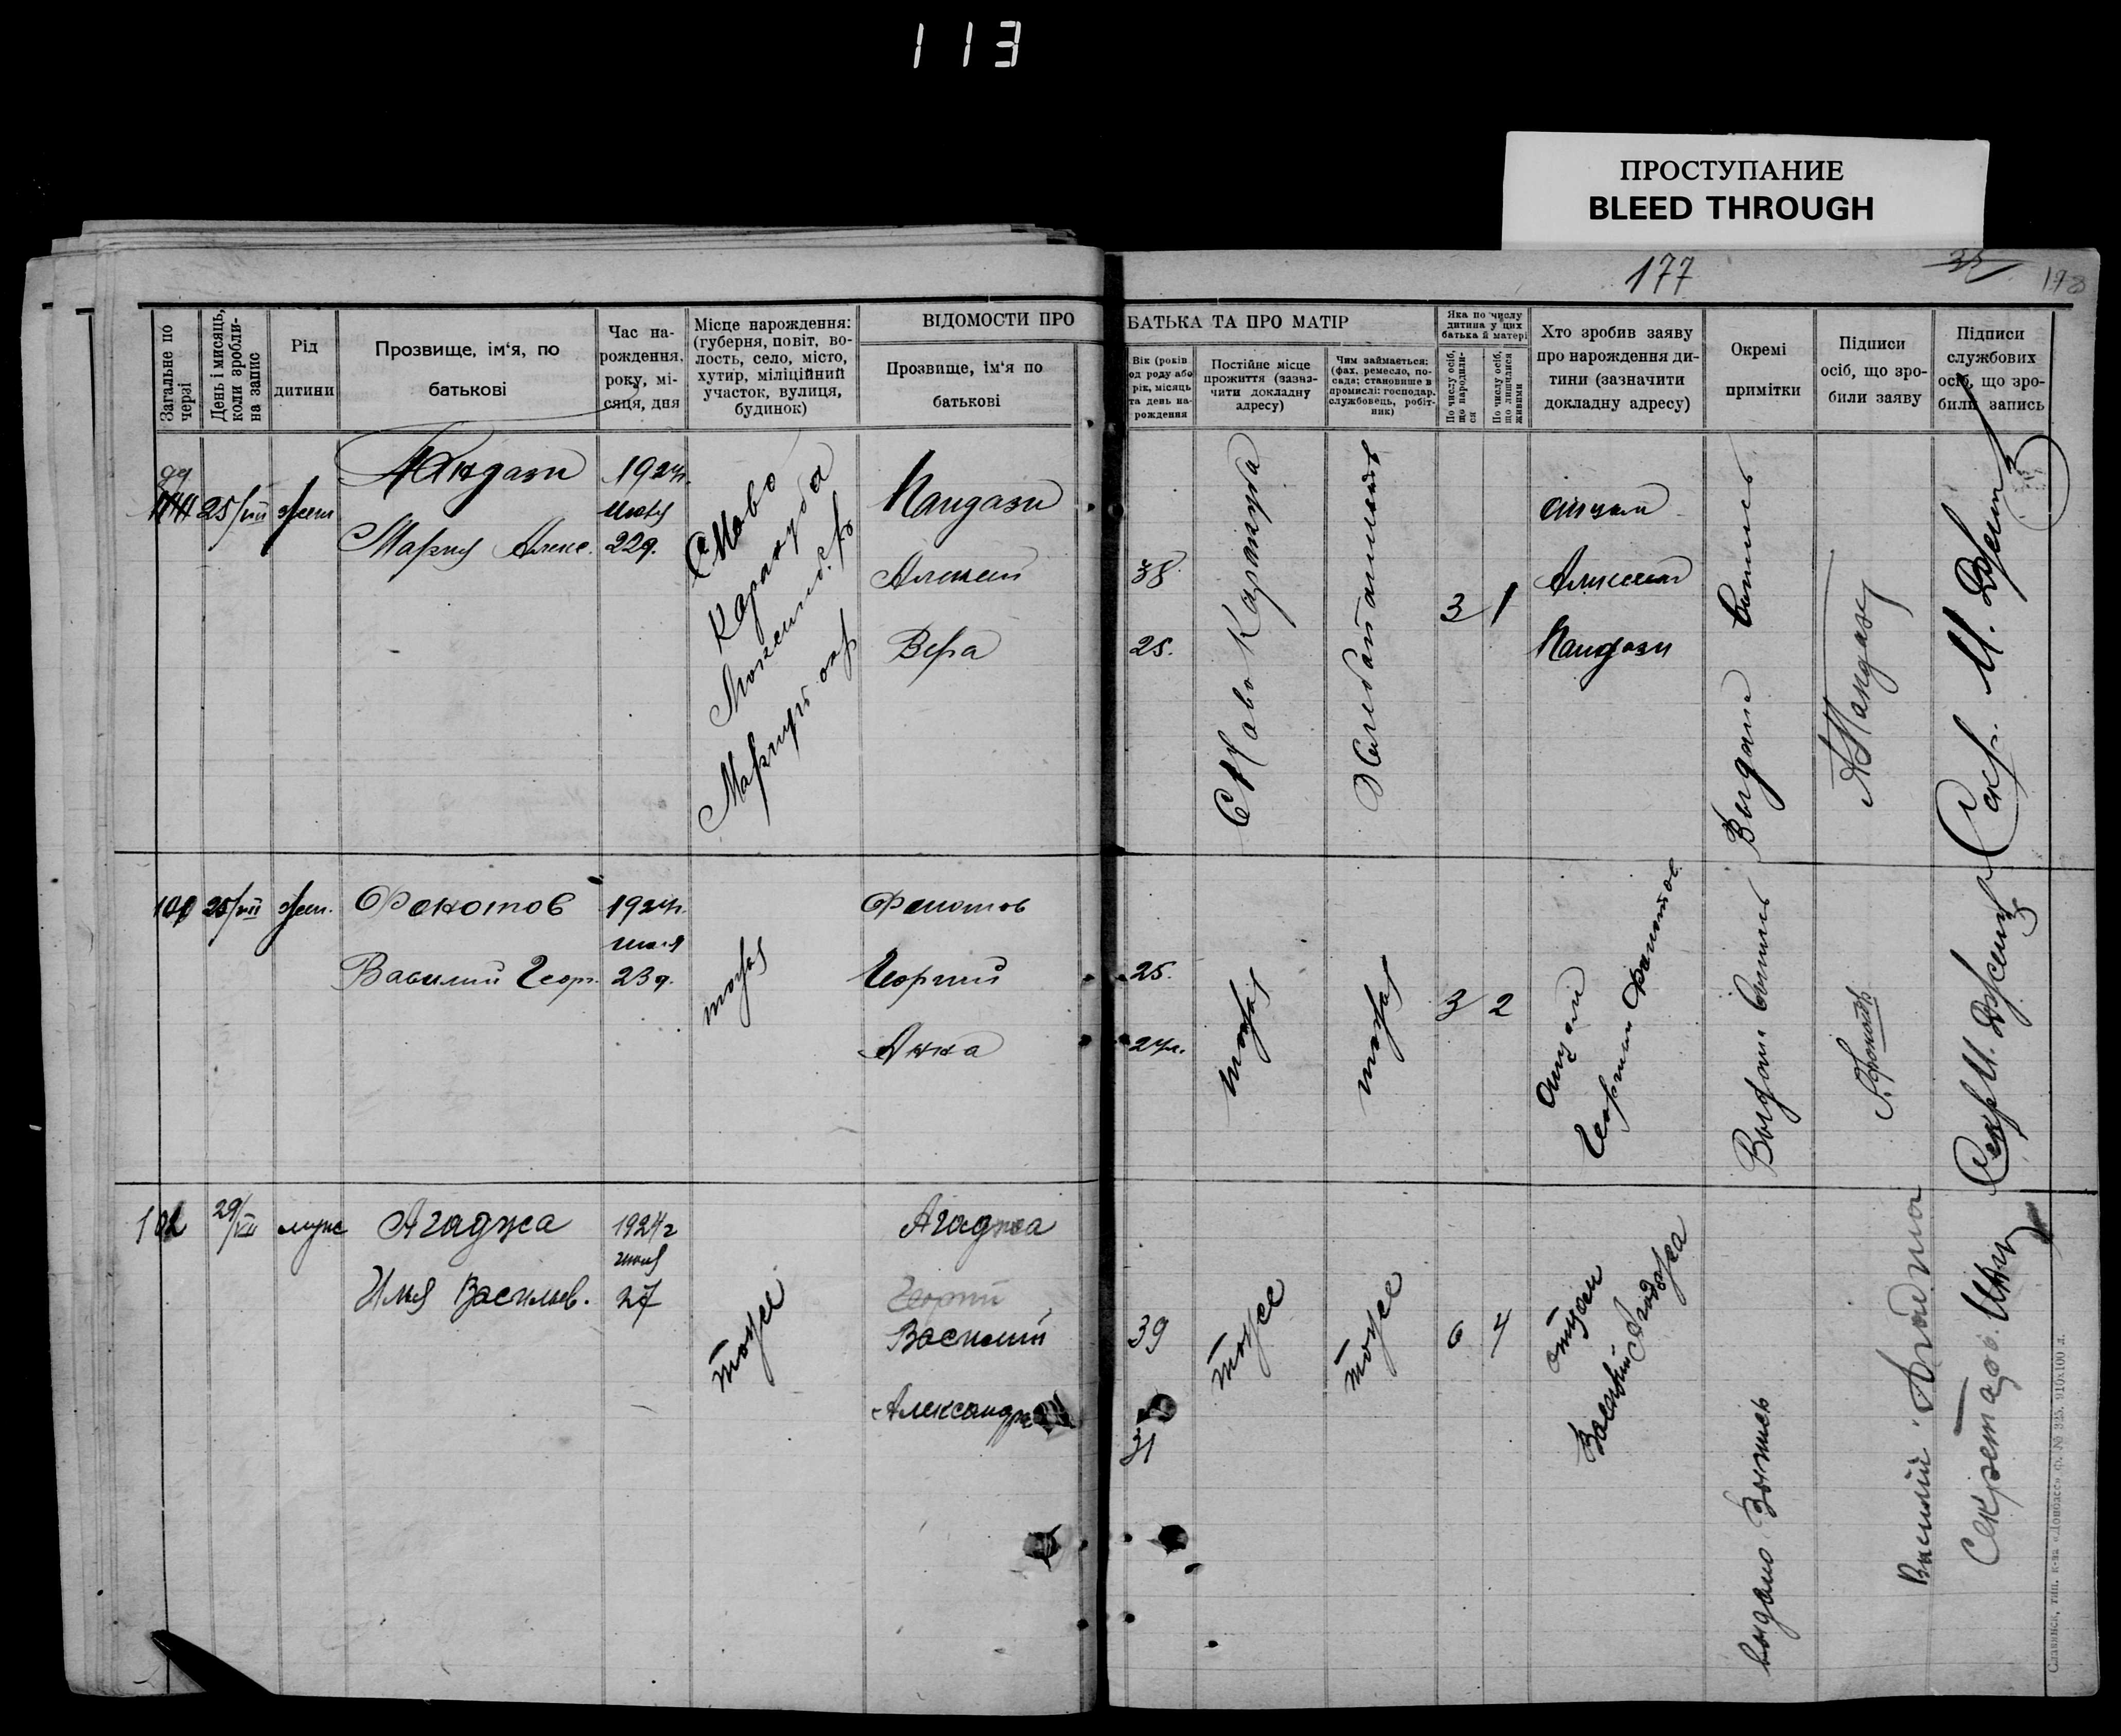 113
ПРОСТУПАНИЕ
BLEED THROUGH
177
178
Загальне по черзі
День і мисяць, коли зробли- на запис
Рід
дитини
Прозвище, ім‘я, по
батькові
Час на-
рождення,
року, мі-
сяця, дня
Місце нарождення:
(губерня, повіт, во-
лость, село, місто,
хутир, міліційний
участок, вулиця,
будинок)
ВІДОМОСТИ ПРО
Прозвище, ім‘я по
батькові
БАТЬКА ТА ПРО МАТІР
Вік (років
од роду або
рік, місяць
та день на-
рождення
Постійне місце
прожиття (зазна-
чити докладну
адресу)
Чим займається:
(фах, ремесло, по-
сада; становище в
промислі: господар.
службовець, робіт-
ник)
Яка по числу
дитина у цих
батька й матері
По числу осіб,
що народили-
ся
По числу осіб,
що лишилися
живими
Хто зробив заяву
про нарождення ди-
тини (зазначити
докладну адресу)
Окремі
примітки
Підписи
осіб, що зро-
били заяву
Підписи
службових
осіб, що зро-
били запись
99
25/VII
жен
Мария Алекс.
1924г.
июля
22д.
Каракуба
Мариуп. окр
Пандази
Алексей
Вера
38.
25.
Каракуба
Хлебопашество
3
1
отцом
Алексеем
Пандази
Выдана выпись
Секр. И. Джент
100
25/VII
жен.
Фонотов
Василий Георг.
1924г.
июля
23д.
тоже
Фонотов
Георгий
Анна
25.
24л.
тоже
тоже
3
2
отцом
Георгием Фонотов
Выдана выпись
Секр И. Джент
102
29/VII
муж
Агаджа
Илья Васильев.
1924г
июля
27
тоже
Агаджа
Георгий
Василий
Александра
39
31
тоже
тоже
6
4
отцом
Василий Агаджа
выдано выпись
Василий
Секретарь
Славянск, тип. к-ва «Донбасс» ф. № 325. 910x100 л.